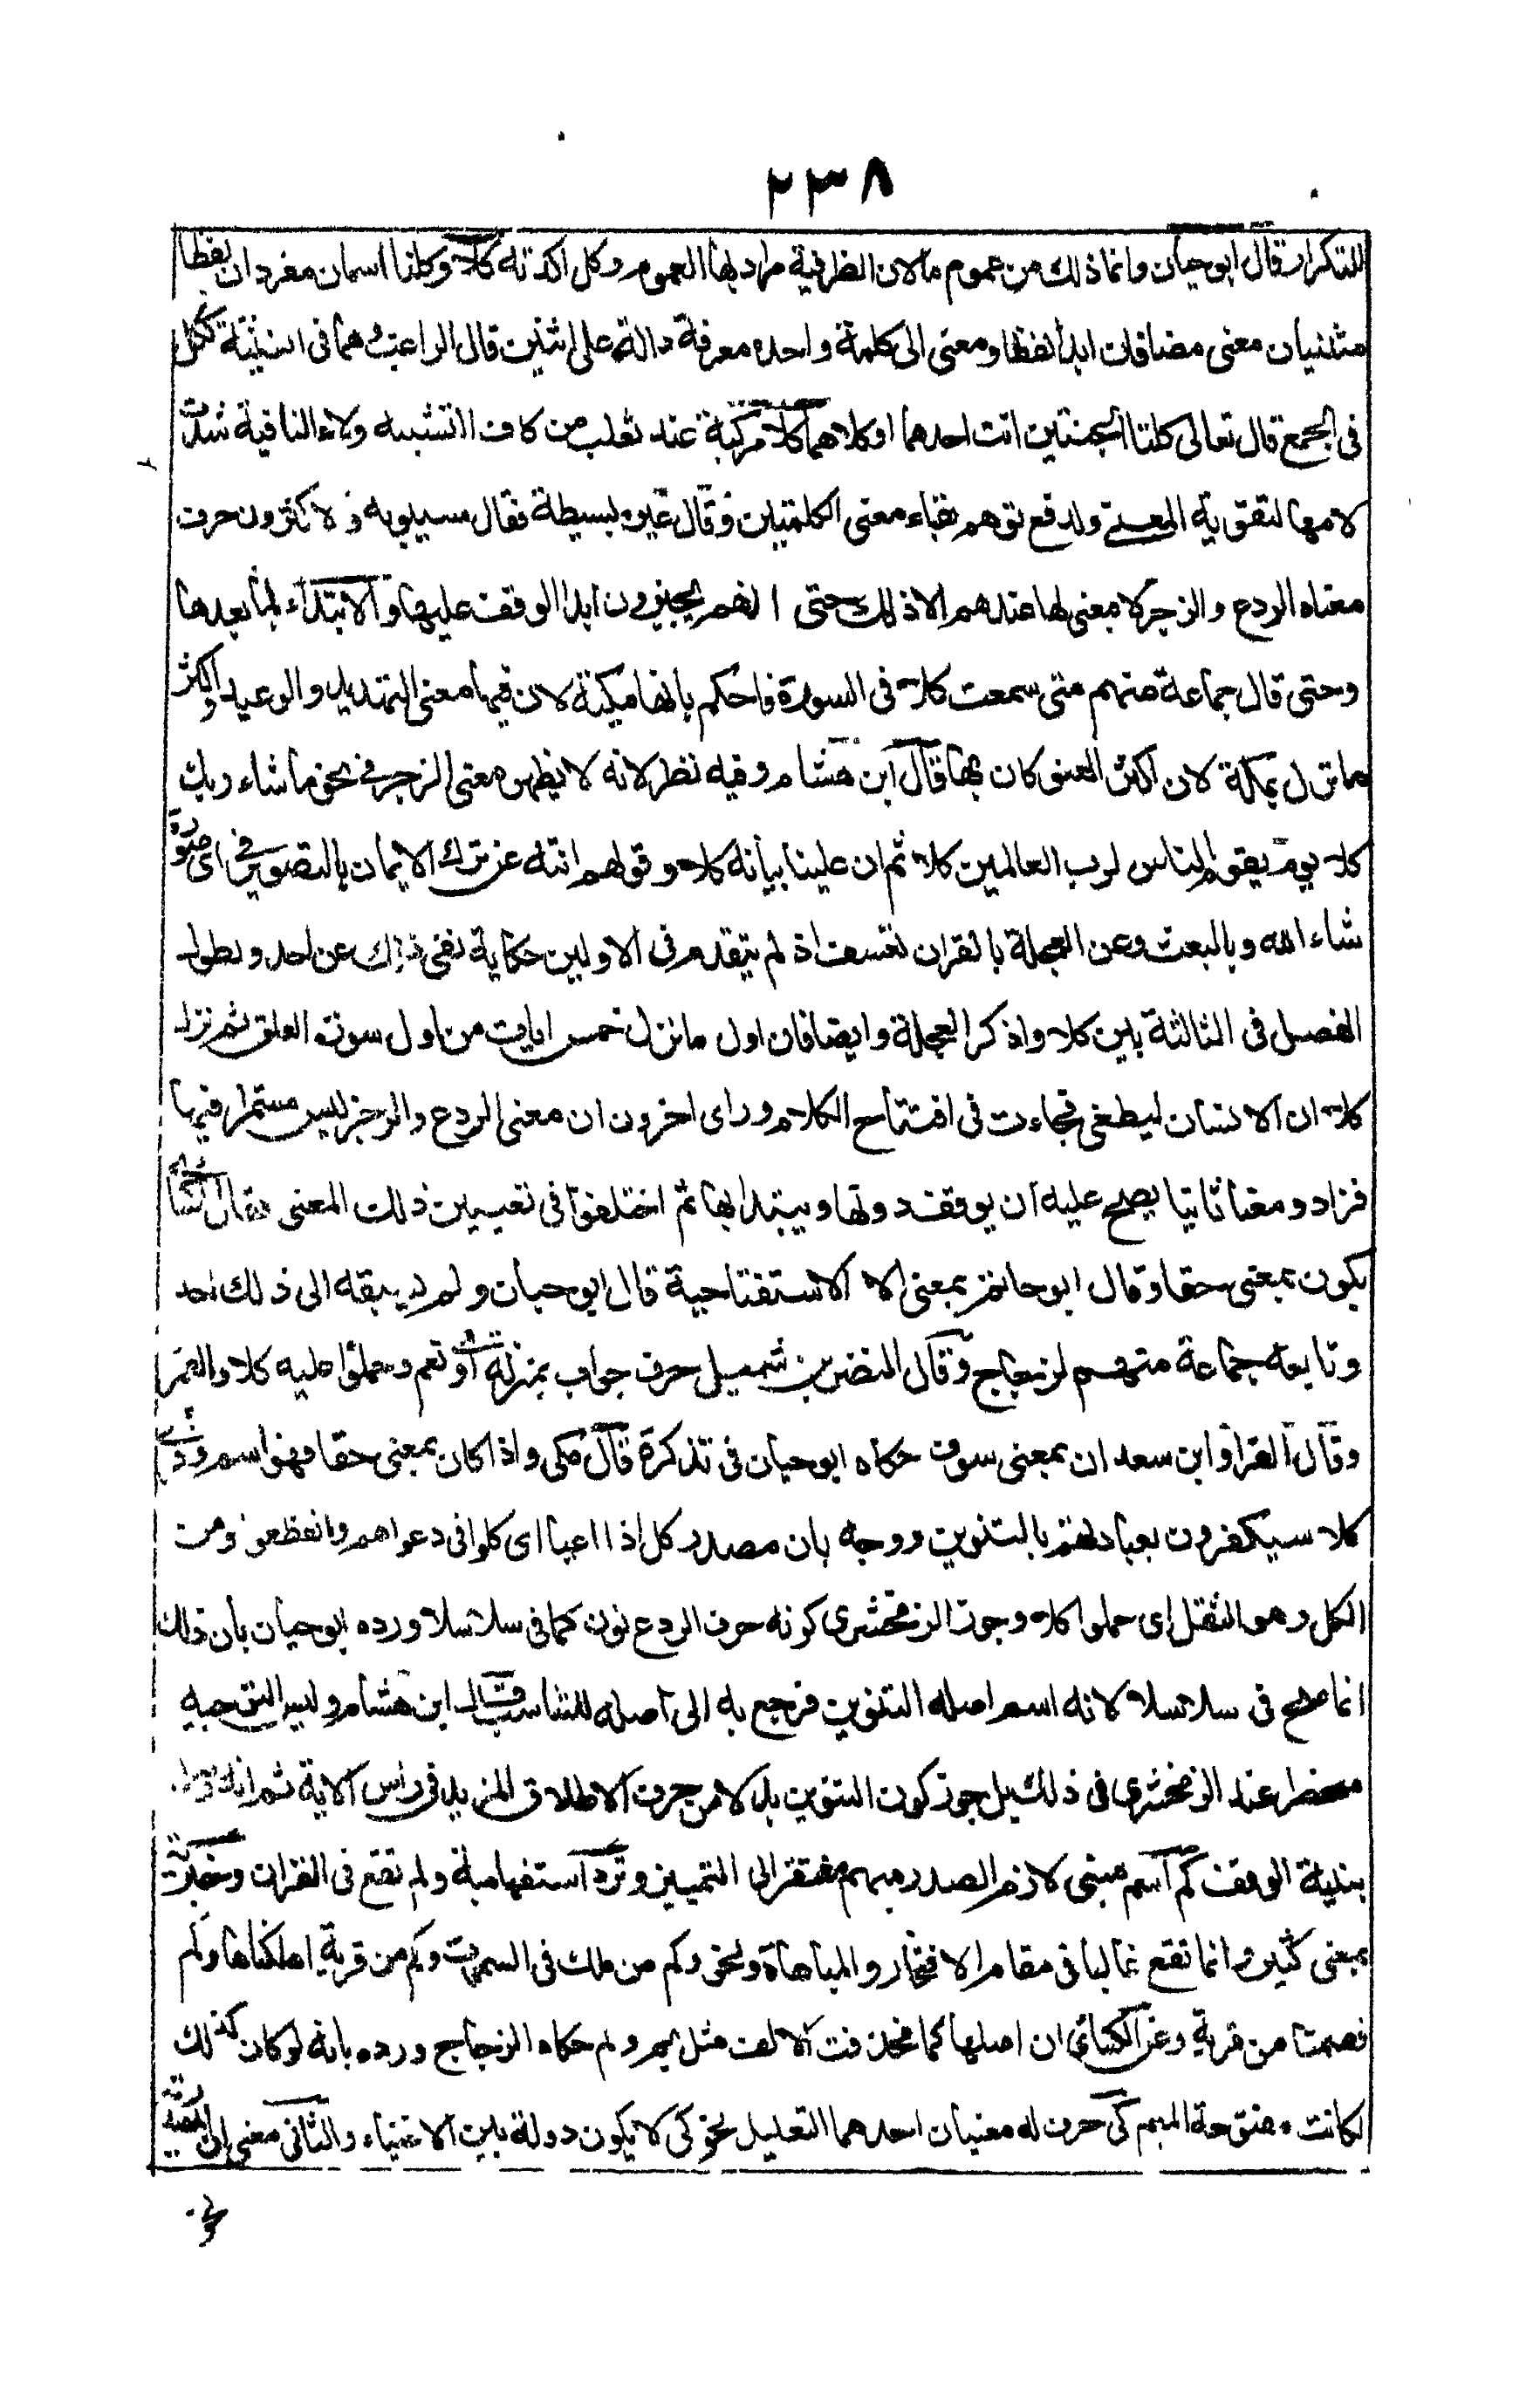 ٢٣٨
للتكرار قال ابو حيان وانما ذلك من عموم ما لان الظرفية مراد بها العموم وكل اكدته كلا وكلتا اسمان مفردان لفظا
مثنيان معنى مضافان ابدا لفظا ومعنى الى كلمة واحدة معرفة دالة على اثنين قال الراغب وهما فى التثنية ككل
فى الجمع قال تعالى كلتا الجنتين اتت احدهما او كلاهما كلا مركبة عند ثعلب من كاف التشبيه ولاء النافية شددت
لامها لتقوية المعنى ولدفع توهم بقاء معنى الكلمتين وقال غيره بسيطة فقال سيبويه والاكثرون حرف
معناه الردع والزجر لا معنى لها عندهم الا ذلك حتى انهم يجيزون ابدا الوقف عليها والابتداء بما بعدها
وحتى قال جماعة منهم متى سمعت كلا فى السورة فاحكم بانها مكية لان فيها معنى التهديد والوعيد واكثر
ما نزل بمكة لان اكثر العتو كان بها قال ابن هشام وفيه نظر لانه لا يظهر معنى الزجر فى نحو ما شاء ربك
كلا يوم يقوم الناس لرب العالمين كلا ثم ان علينا بيانه كلا وقولهم انته عن ترك الايمان بالتصوير فى اى صورة
شاء الله وبالبعث وعن العجلة بالقران تعسف اذ لم يتقدم فى الاولين حكاية نفى ذلك عن احد ولطول
الفصل فى الثالثة بين كلا وذكر العجلة وايضا فان اول ما نزل خمس ايات من اول سورة العلق ثم نزل
كلا ان الانسان ليطغى فجاءت فى افتتاح الكلام وراى اخرون ان معنى الردع والزجر ليس مستمرا فيها
فزادو معنا ثانيا يصح عليه ان يوقف دونها ويبتدا بها ثم اختلفوا فى تعيين ذلك المعنى فقال الكسائى
يكون بمعنى حقا وقال ابو حاتم بمعنى الا الاستفتاحية قال ابو حيان ولم يسبقه الى ذلك احد
وتابعه جماعة منهم الزجاج وقال النضر بن شميل حرف جواب بمنزلة اى ونعم وحملوا عليه كلا والقمر
وقال الفرا وابن سعدان بمعنى سوف حكاه ابو حيان فى تذكرة قال مكى واذا كان بمعنى حقا فهو اسم وقرئ
كلا سيكفرون بعبادتهم بالتنوين ووجه بان مصدر كل اذا اعيا اى كلوا فى دعواهم وانقطعوا ومن
الكل وهو الثقل اى حملوا كلا وجوز الزمخشرى كونه حرف الردع نون كما فى سلاسلا ورده ابو حيان بان ذلك
انما صح فى سلاسلا لانه اسم اصله التنوين فرجع به الى اصله للتناسب قال ابن هشام وليس التوجيه
منحصرا عند الزمخشرى فى ذلك بل جوز كون التنوين بدلا من حرف الاطلاق المزيد فى راس الاية ثم انه وصل
بنية الوقف كم اسم مبنى لازم الصدر مبهم مفتقر الى التمييز وترد استفهامية ولم تقع فى القران وخبرية
بمعنى كثير وانما تقع غالبا فى مقام الافتخار والمباهاة ونحو وكم من ملك فى السموت وكم من قرية اهلكناها وكم
قصمنا من قرية وعن الكسائى ان اصلها كما فحذفت الالف مثل بم ولم حكاه الزجاج ورده بانه لو كان كذلك
لكانت مفتوحة الميم كى حرف له معنيان احدهما التعليل نحو كى لا يكون دولة بين الاغنياء والثانى معنى ان المصدرية